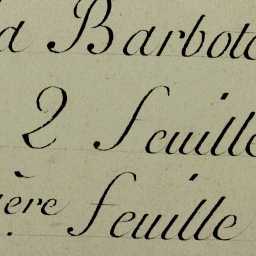 la Barboto
2 feuille
ière feuille